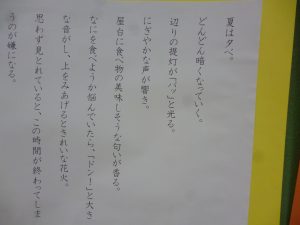 夏は夕べ。
どんどん暗くなっていく。
辺りの提灯が「パッ」と光る。
にぎやかな声が響き。
屋台に食べ物の美味しそうな匂いが香る。
なにを食べようか悩んでいたら、「ドン!」と大き
な音がし、上をみあげるときれいな花火。
思わず見とれていると、この時間が終わってしま
うのが嫌になる。